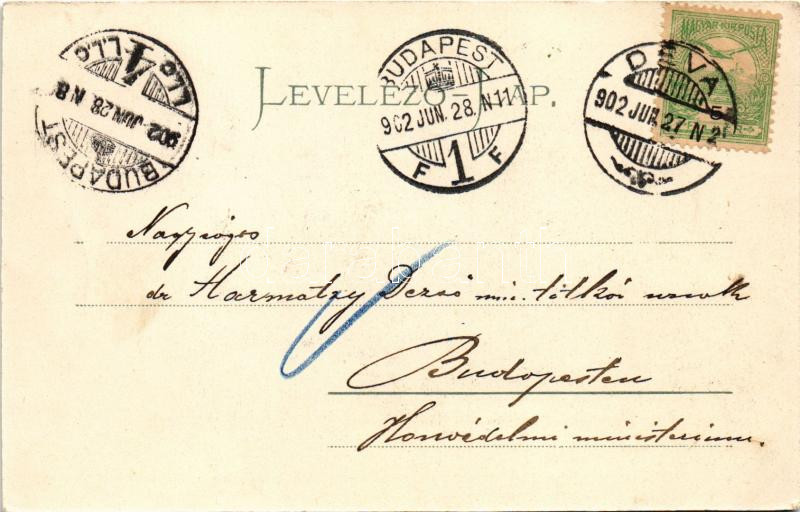 MAGYAR KIR. POSTA
DÉVA
902 JUN. 27 N 2
BUDAPEST
902 JUN. 28. N 11
F 1 F
BUDAPEST
902 JUN. 28. N 8
LEVELEZŐ-LAP.
Nagyságos
dr Harmatzy Dezső min. titkár urnak
Budapesten
Honvédelmi ministerium.